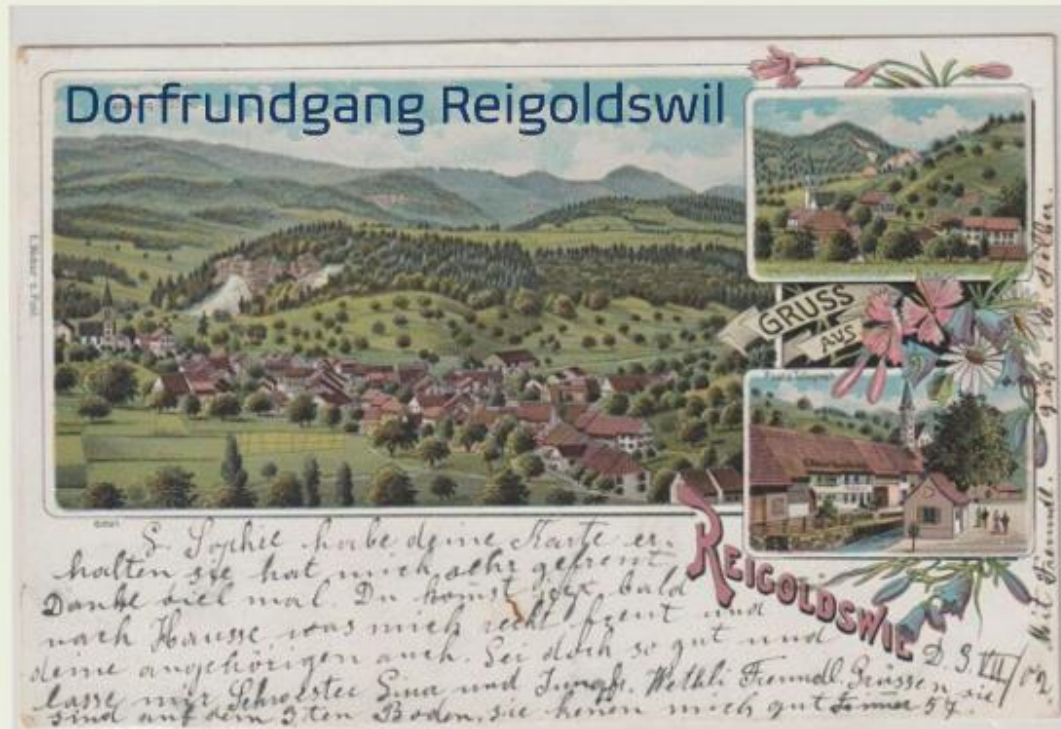 Dorfrundgang Reigoldswil
GRUSS
AUS
REIGOLDSWIL
S. Sophie habe deine Karte er-
halten sie hat mich sehr gefreut
Danke viel mal. Du komst jetz bald
nach Hausse was mich recht freut und
deine angehörigen auch. Sei doch so gut und
lasse mir Schwester Sina und Jungfr. Wethli Freundl. Grüssen sie
sind auf dem 3ten Boden. sie kenen mich gut 57.
D 9 VII/02
Mit Freundl. Grüss